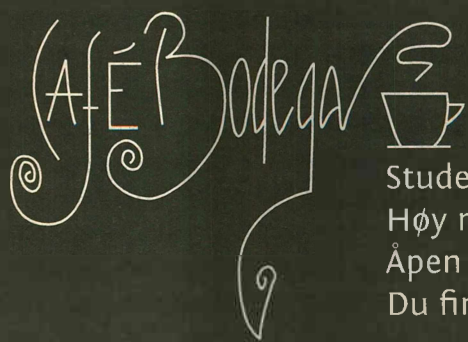 CAFÉ Bodega
Stude
Høy
Åpen
Du